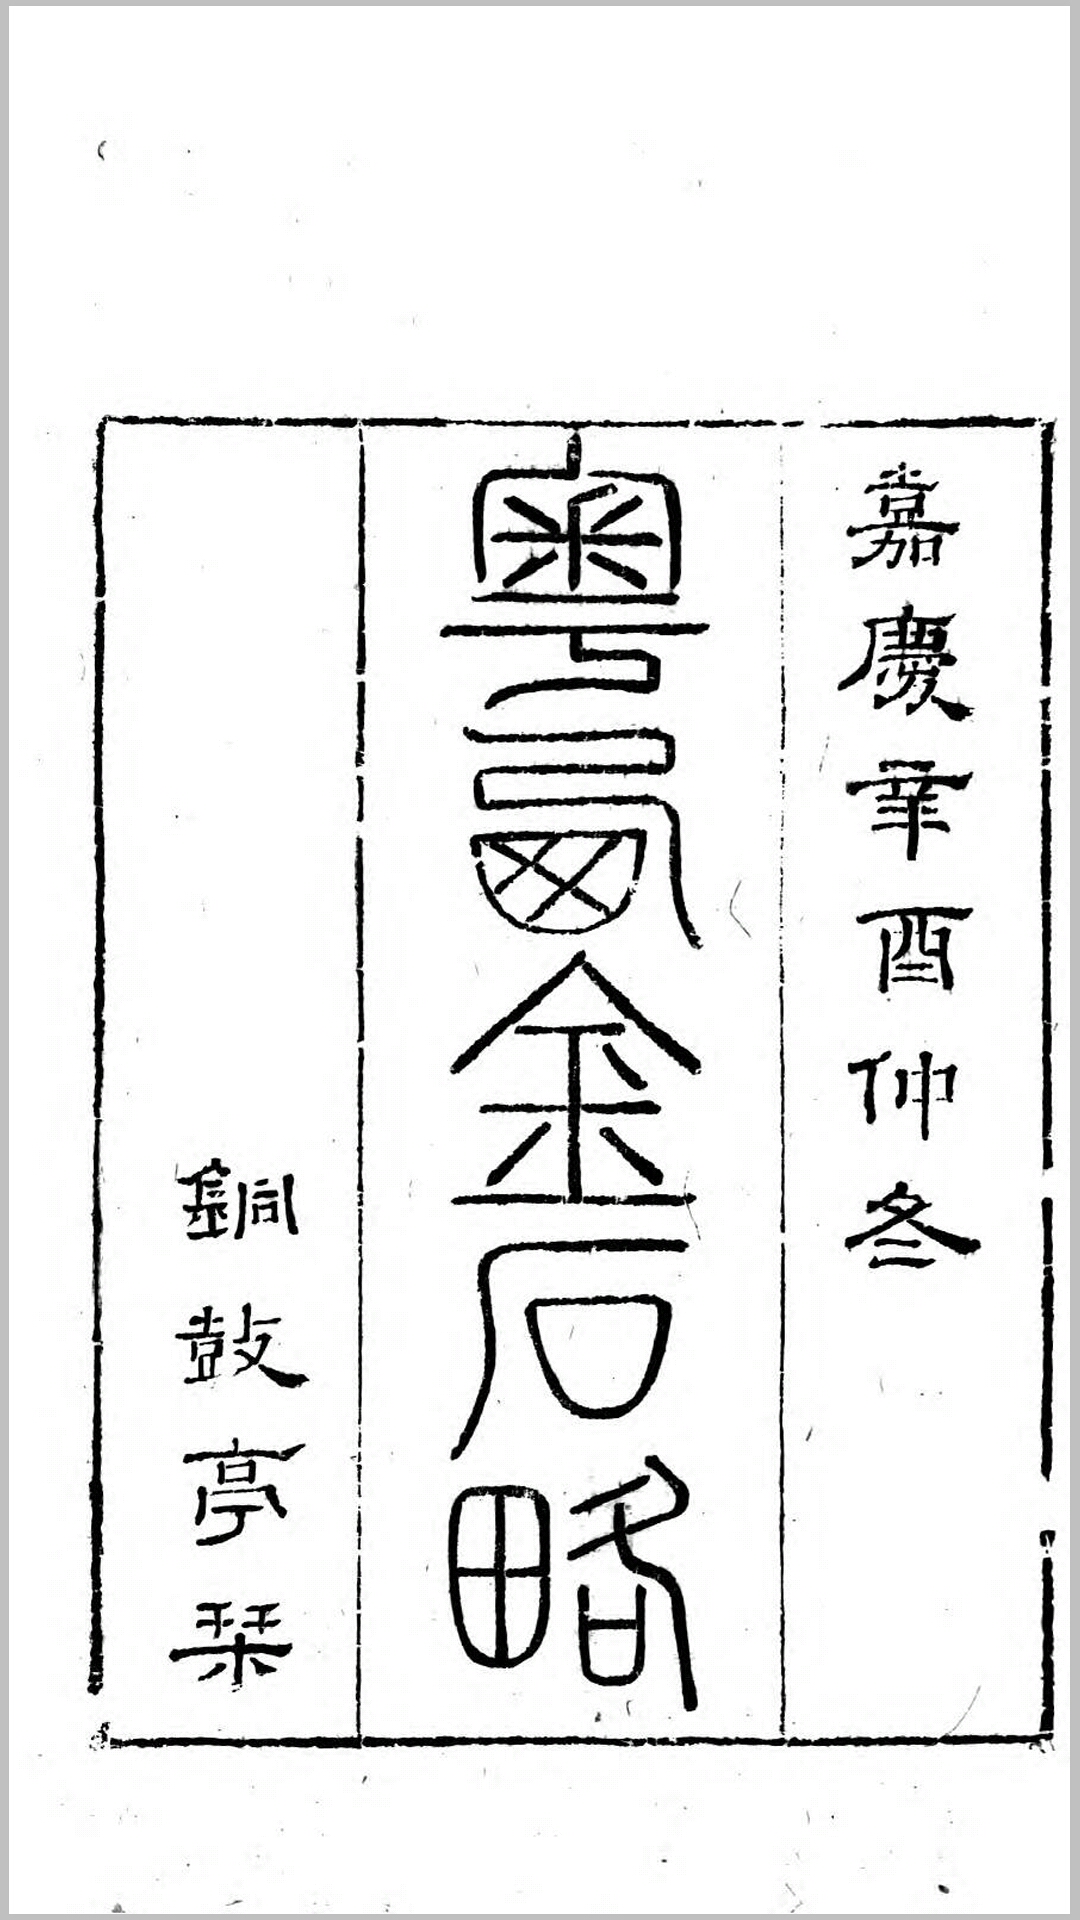 嘉慶辛酉仲冬
粵西金石略
銅鼓亭栞